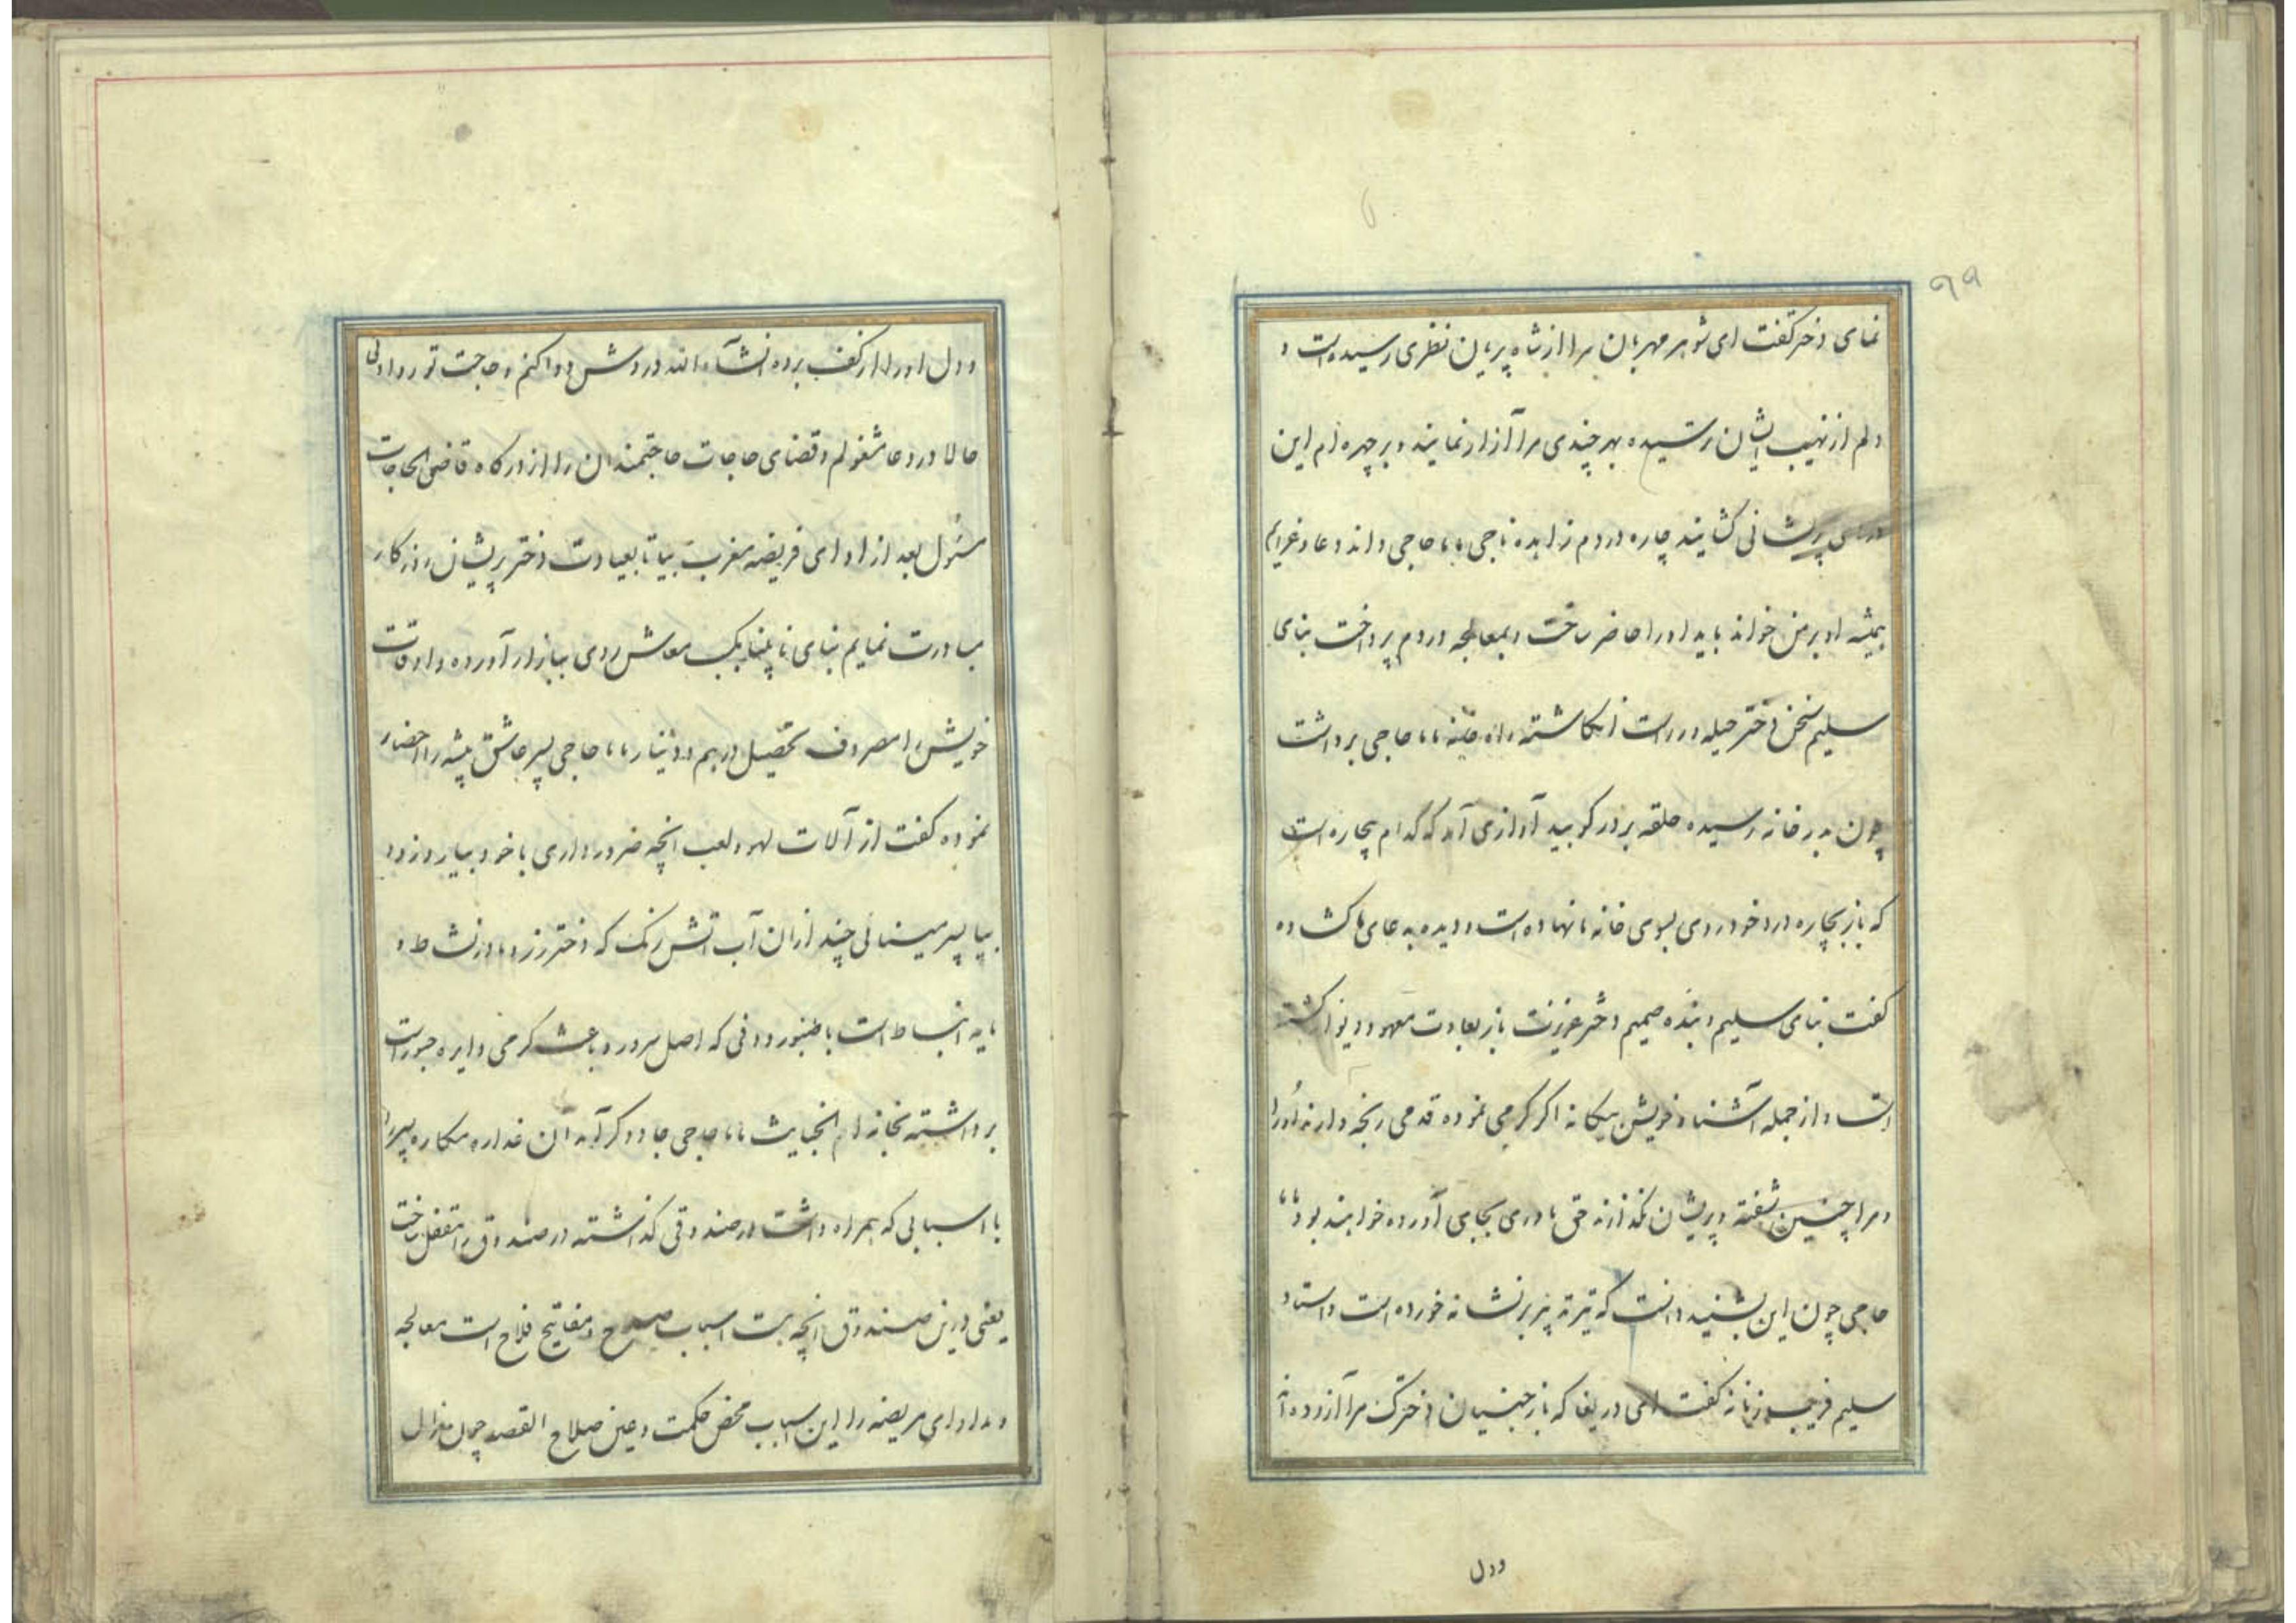 ۹۹
نمای دختر گفت ای شوهر مهربان مرا از شاه پریان نظری رسیده است و
دلم از نهیب ایشان رسیده بهر چندی مرا آزار نمایند و بر چهره ام این
پریشانی کشایند چاره دردم زاهده باجی بابا حاجی داند دعا و عزایم
همیشه او بر من خواند باید او را حاضر ساخت و بمعالجه دردم پرداخت بنای
سلیم سخن دختر حیله ور راست انکاشته راه خانه بابا حاجی برداشت
چون بدر خانه رسیده حلقه بر در کوبید آوازی آمد که کدام بیچاره است
که باز بچاره درد خود روی بسوی خانه ما نهاده است و دیده به دعای ما کشاده
کفت بنای سلیم و بنده صمیم دختر عزیزت باز بعادت معهود دیوانه کشته
است و از جمله آشنا و خویش بیکانه اکر کرمی نموده قدمی رنجه دارند او را
و مرا چنین شفته و پریشان نکذارند حق مادری بجای آورده خواهند بود بابا
حاجی چون این بشنید دانست که تیر تدبیر بر نشانه خورده است و استاد
سلیم فریب زنانه کفت ای دریغا که باز جنیان دخترک مرا آزرده اند
ودل
ودل او را از کف برده انشآء الله دردش دوا کنم و حاجت تو روا ولی
حالا در دعا مشغولم و قضای حاجات حاجتمندان را از درکاه قاضی الحاجات
مسئول بعد از ادای فریضه مغرب بیا تا بعیادت دختر پریشان روزکار
مبادرت نمایم بنای سبک معاش روی ببازار آورده و اوقات
خویش را مصروف تحصیل درهم و دینار بابا حاجی پسر عاشق پیشه را احضار
نموده کفت از آلات لهو و لعب آنچه ضرور داری با خود بیار و زود
بیا پسر مینائی چند از آن آب آتش رنک که دختر رز و مادر نشاط و
مایه انبساط است با طنبور و دفی که اصل سرور و باعث کرمی دایره حبور است
برداشته بخانه ام الخبایث بابا حاجی جادوکر آمد آن غداره مکاره پسر را
با اسبابی که همراه داشت در صندوقی کذاشته در صندوق را مقفل ساخت
یعنی در این صندوق آنچه هست اسباب صلاح و مفاتیح فلاح است معالجه
و مداوای مریضه را این اسباب محض حکمت و عین صلاح القصه چون غزال